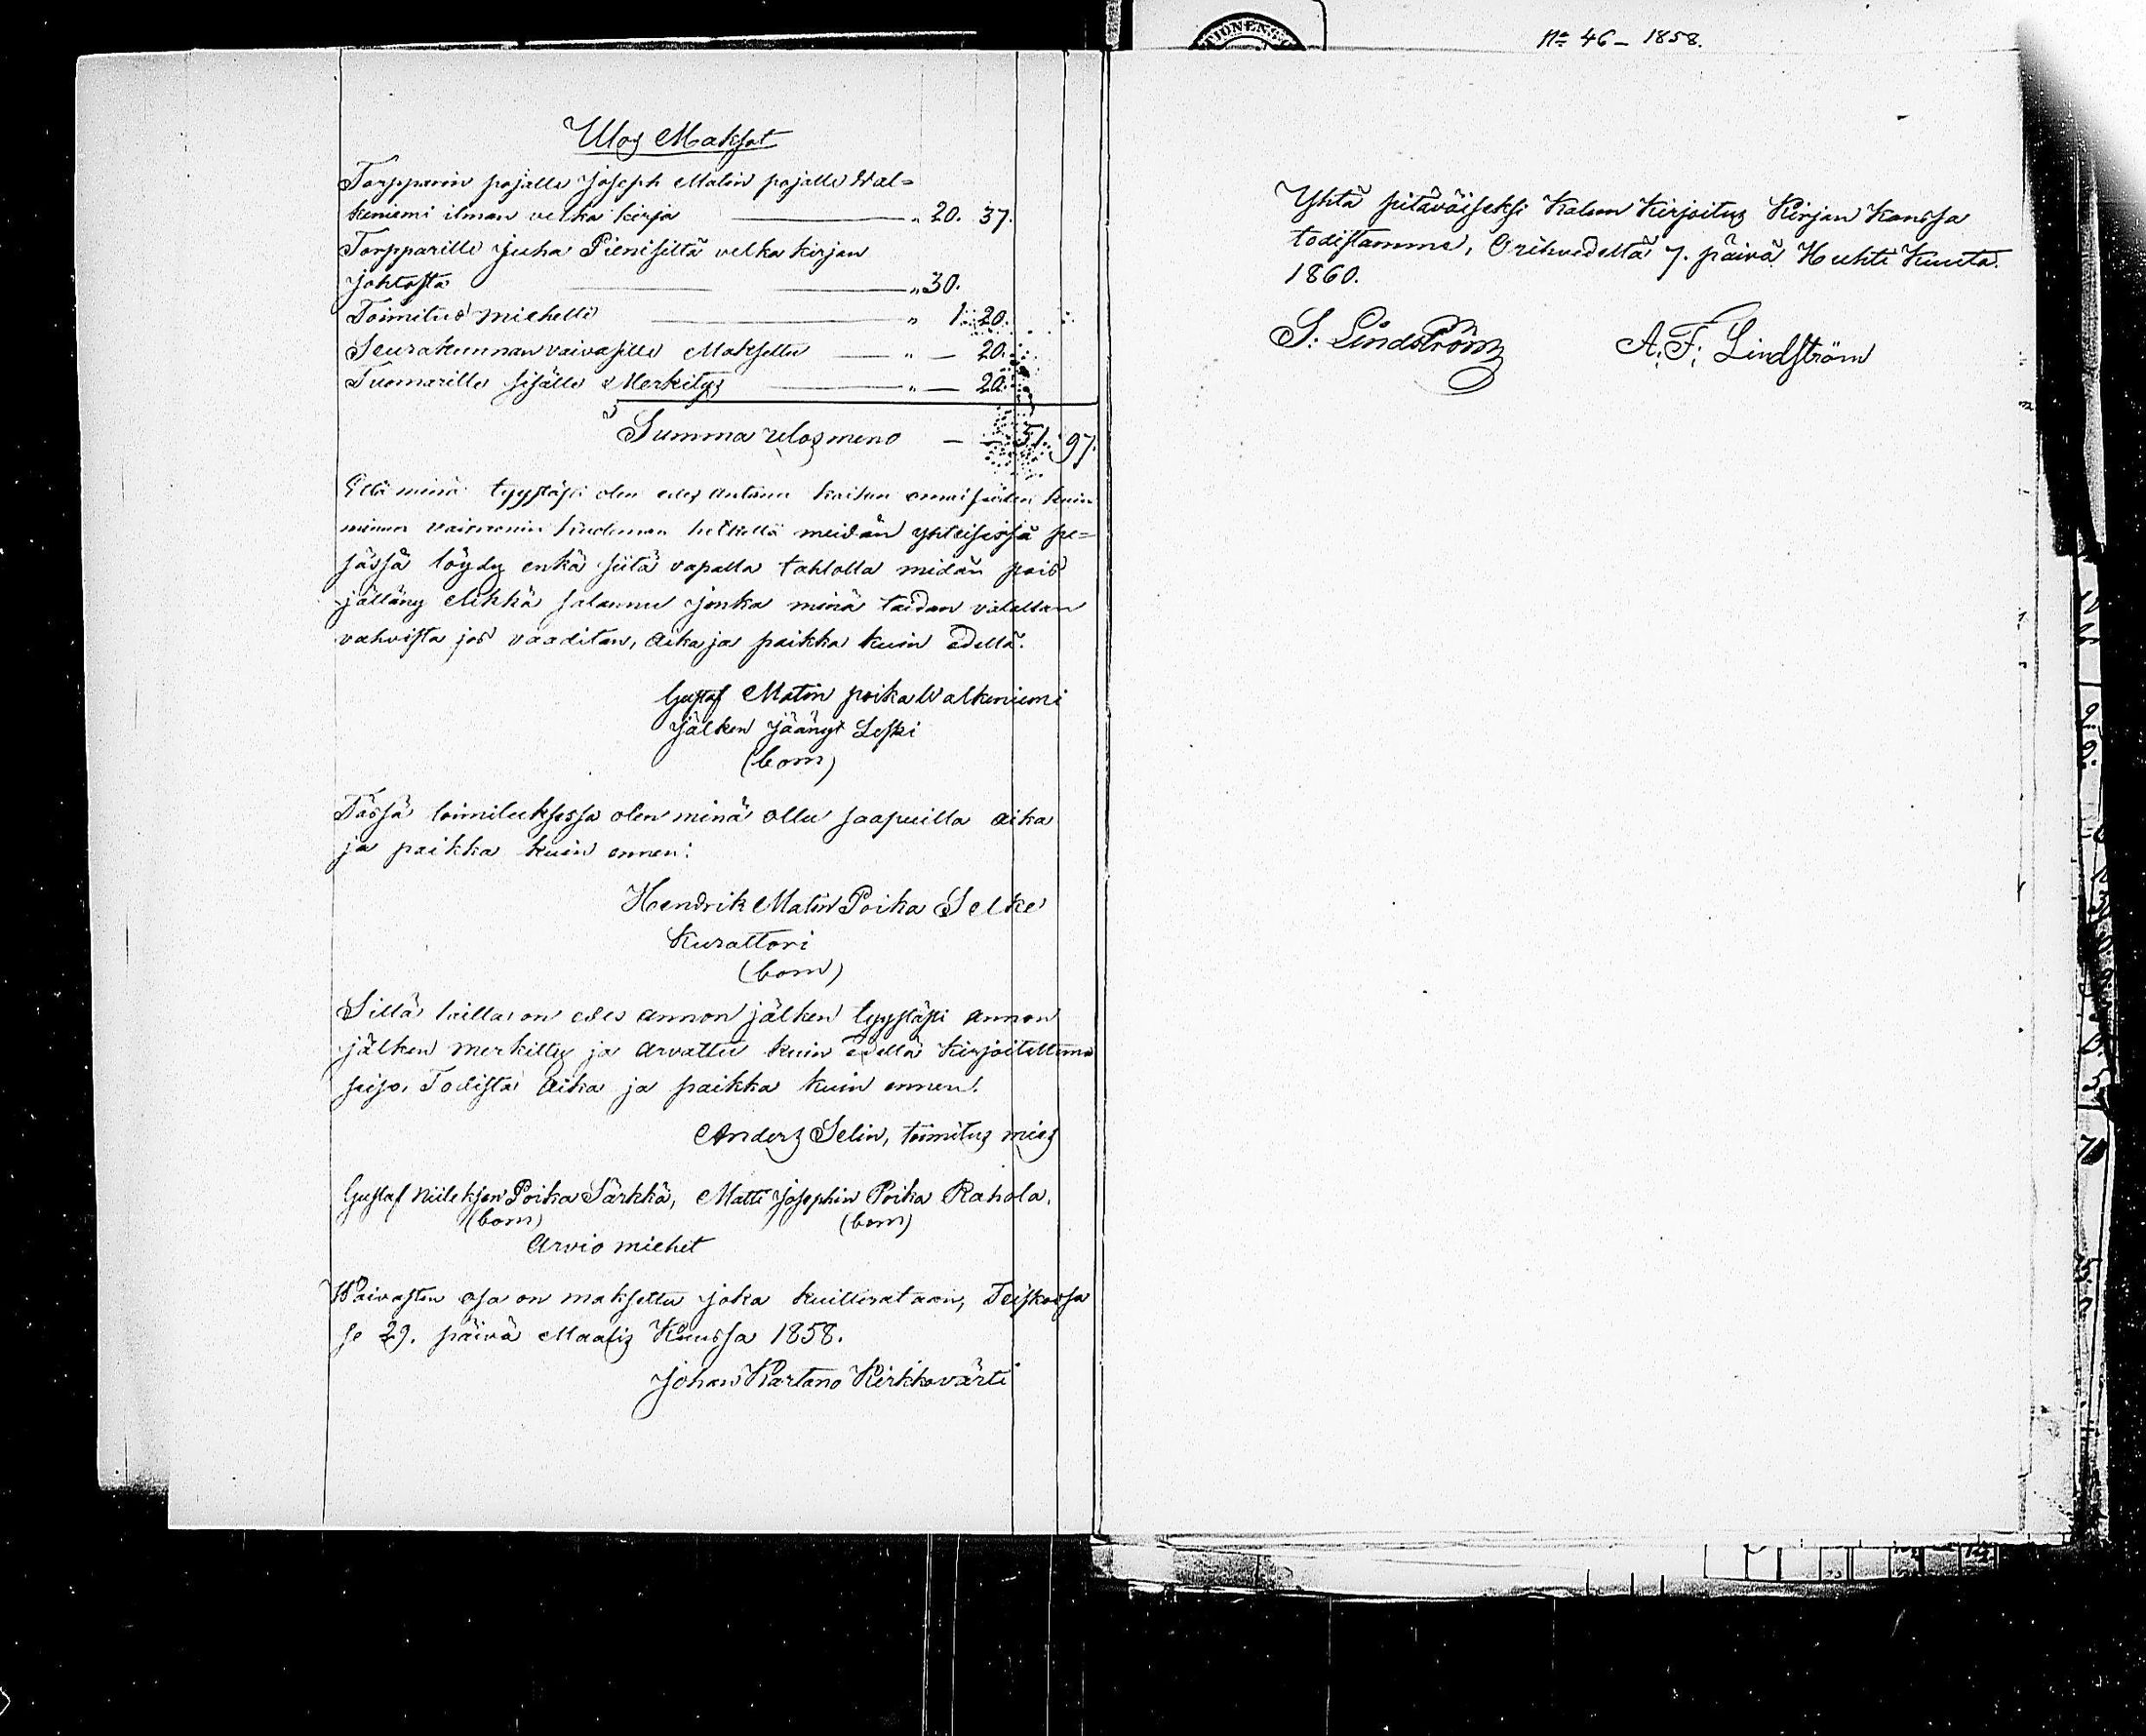 Ulos Maksot
Torpparin pojalle Joseph Matin pojalle Wal-
keniemi ilman velka kirja — „ 20. 37.
Torpparille Juha Pienisiltä velka kirjan
johtosta — „ 30.
Toimitus miehelle — „ 1. 20.
Seurakunnan vaivasille Maksettu — „ — 20.
Tuomarille sisälle Merkitys — „ — 20.
Summa ulosmeno — — 51. 97.
Että minä tyystästi olen edes antanu kaiken omaisuden kuin
minun vaimonin kuoleman hetkellä meidän yhteisessä pe-
sässä löydy enkä siitä vapalla tahtolla midän pois
jättäny elikkä salannu jonka minä taidan valallan
vahvista jos vaaditan, aika ja paikka kuin edellä.
Gustaf Matin poika Walkeniemi
Jälken jäänyt Leski
(bom)
Tässä toimituksessa olen minä ollu saapuilla aika
ja paikka kuin ennen:
Hendrik Matin Poika Selke
Kurattori
(bom)
Sillä lailla on edes annon jälken tyystästi annon
jälken merkitty ja arvattu kuin edellä kirjoitettuna
seiso, Todista aika ja paikka kuin ennen.
Anders Selin, toimitus mies
Gustaf Poika Särkkä, Matti Josephin Poika Rahola.
(bom) (bom)
Arvio miehet
Waivasten osa on maksettu joka kuitterataan, Teiskossa
se 29. päivä Maalis Kuussa 1858.
Johan Kartano Kirkkovärti
No 46 – 1858.
Yhtä pitäväiseksi Kalun Kirjoitus Kirjan Kanssa
todistamme, Orihvedeltä 7. päivä Huhti Kuuta.
1860.
S. Lindström A. F. Lindström